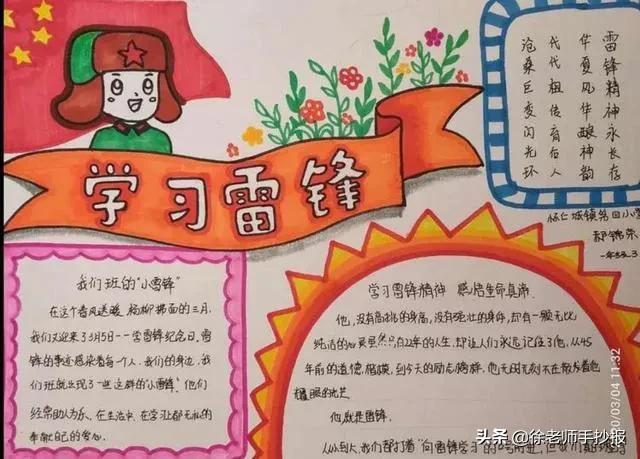 学习雷锋
雷锋精神永长存
华夏风华酿神韵
代代祖传育后人
沧桑巨变闪光环
怀仁城镇第四小学
一年级3
我们班的"小雷锋"
在这个春风送暖 杨柳拂面的三月,
我们又迎来了3月5日——学雷锋纪念日,雷
锋的事迹感染着每一个人。我们的身边,我
们班就出现了一些这样的"小雷锋"他们
经常助人为乐、在生活中、在学习上都无私的
奉献自己的爱心。
学习雷锋精神 感悟生命真谛
他,没有高挑的身高,没有强壮的身躯,却有一颗无比
纯洁的心灵虽然只有22年的人生,却让人们永远记住了他,从45
年前的道德楷模,到今天的励志榜样,他无时无刻不在散发着他
耀眼的光芒
他就是雷锋。
从小到大,我们都打着"向雷锋学习"的口号前进,但我们
20/03/04 11:32
头条 @徐老师手抄报